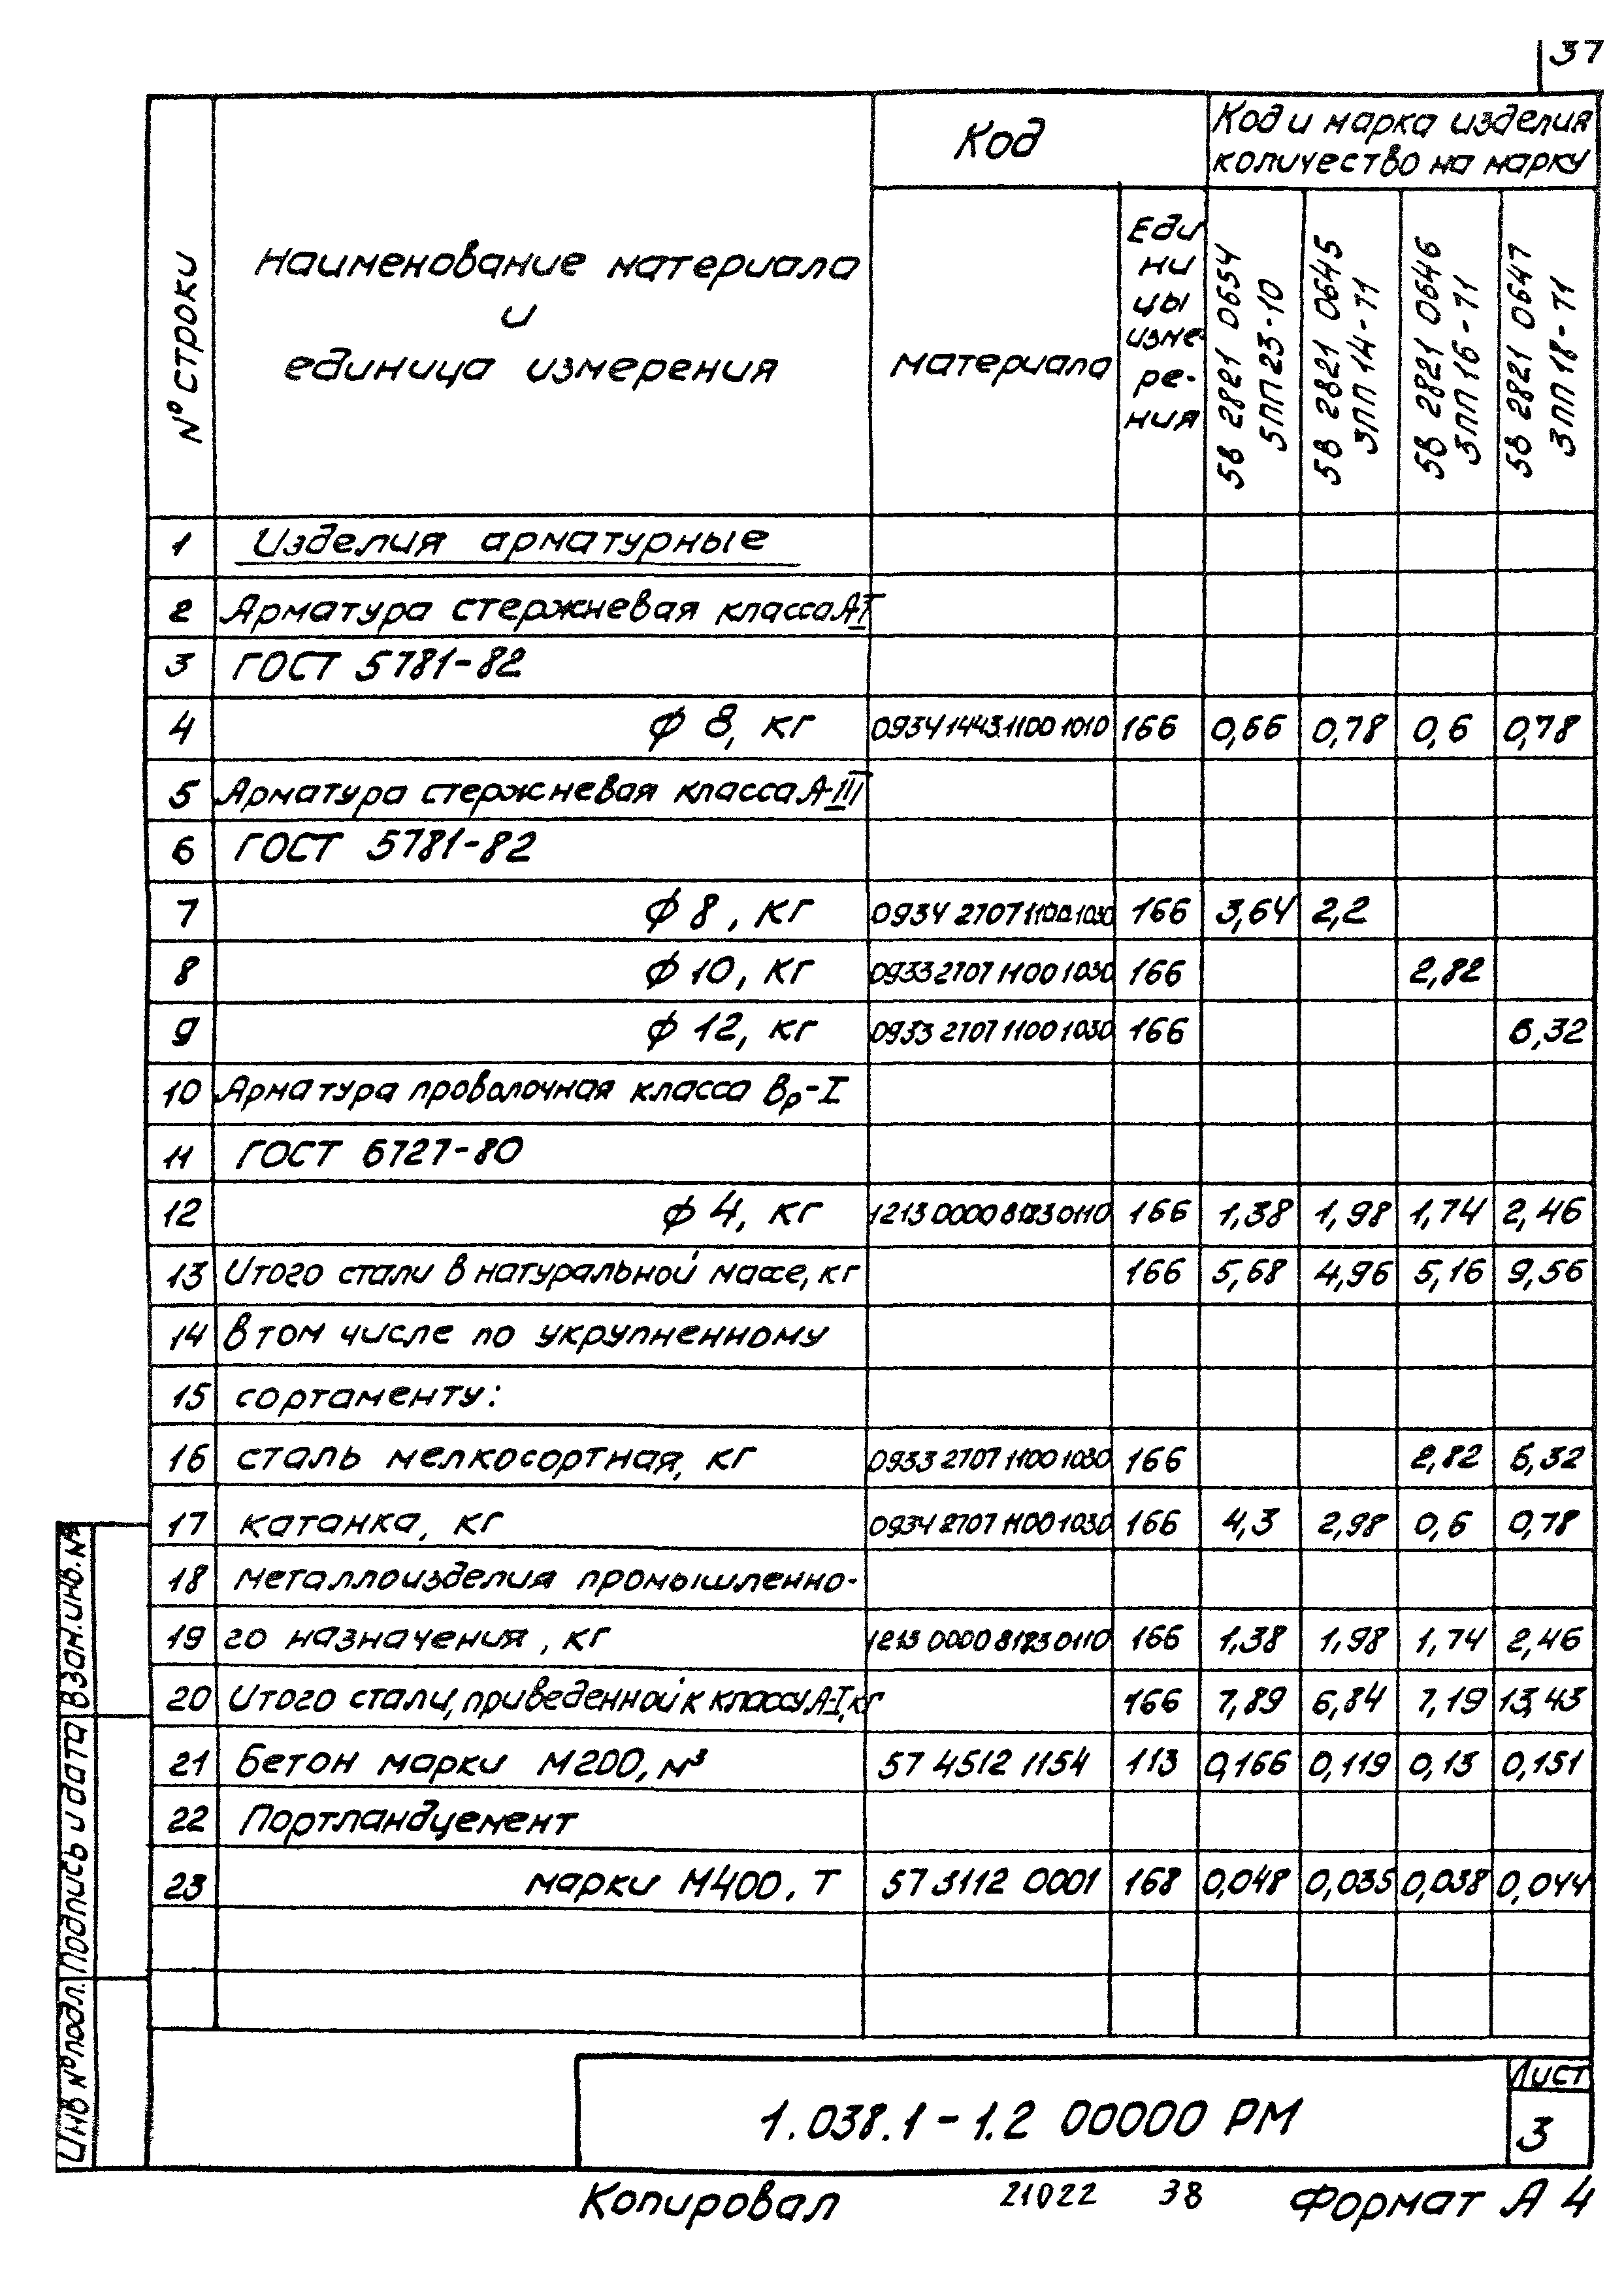 37
№ строки
Наименование материала
и
единица измерения
Код
материала
Еди
ни
цы
изме-
ре-
ния
Код и марка изделия
количество на марку
5В 2821 0654
5ПП 23-10
5В 2821 0645
3ПП 14-71
5В 2821 0646
3ПП 16-71
5В 2821 0647
3ПП 18-71
1 Изделия арматурные
2 Арматура стержневая класса А-I
3 ГОСТ 5781-82
4 ϕ 8, кг 0934 1443 1100 1010 166 0,66 0,78 0,6 0,78
5 Арматура стержневая класса А-III
6 ГОСТ 5781-82
7 ϕ 8, кг 0934 2707 1100 1030 166 3,64 2,2
8 ϕ 10, кг 0933 2707 1100 1030 166 2,82
9 ϕ 12, кг 0933 2707 1100 1030 166 6,32
10 Арматура проволочная класса Вр-I
11 ГОСТ 6727-80
12 ϕ 4, кг 1213 0000 8123 0110 166 1,38 1,98 1,74 2,46
13 Итого стали в натуральной массе, кг 166 5,68 4,96 5,16 9,56
14 в том числе по укрупненному
15 сортаменту:
16 сталь мелкосортная, кг 0933 2707 1100 1030 166 2,82 6,32
17 катанка, кг 0934 2707 1100 1030 166 4,3 2,98 0,6 0,78
18 металлоизделия промышленно-
19 го назначения, кг 1213 0000 8123 0110 166 1,38 1,98 1,74 2,46
20 Итого стали, приведенной к классу А-I, кг 166 7,89 6,84 7,19 13,43
21 Бетон марки М200, м³ 57 4512 1154 113 0,166 0,119 0,13 0,151
22 Портландцемент
23 марки М400, Т 57 3112 0001 168 0,048 0,035 0,038 0,044
Взам. инв. №
Подпись и дата
Инв № подл.
1.038.1-1.2 00000 РМ
Лист
3
Копировал 21022 38 Формат А4